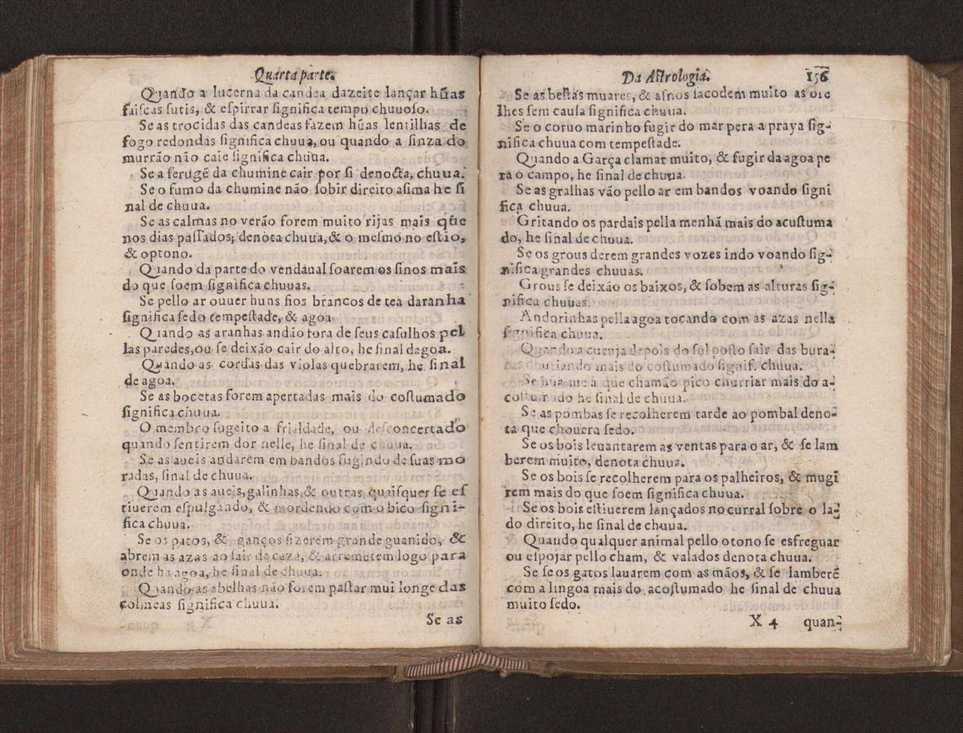 Quarta parte.
Quando a lucerna da candea dazeite lançar hũas
faiſcas ſutis, & eſpirrar ſignifica tempo chuuoſo.
Se as trocidas das candeas fazem hũas lentilhas de
fogo redondas ſignifica chuua, ou quando a ſinza do
murrão não caie ſignifica chuua.
Se a ferugẽ da chumine cair por ſi denoſta, chuua.
Se o fumo da chumine não ſobir direito aſima he ſi
nal de chuua.
Se as calmas no verão forem muito rijas mais que
nos dias paſſados, denota chuua, & o meſmo no eſtio,
& optono.
Quando da parte do vendaual ſoarem os ſinos mais
do que ſoem ſignifica chuuas.
Se pello ar ouuer huns fios brancos de tea daranha
ſignifica ſedo tempeſtade, & agoa
Quando as aranhas andão fora de ſeus caſulhos pel
las paredes, ou ſe deixão cair do alto, he ſinal dagoa.
Quando as cordas das violas quebrarem, he ſinal
de agoa.
Se as bocetas forem apertadas mais do coſtumado
ſignifica chuua.
O membro ſugeito a frialdade, ou desconcertado
quando ſentirem dor nelle, he ſinal de chuua.
Se as aueis andarem em bandos fugindo de ſuas mo
radas, ſinal de chuua.
Quando as aueis, galinhas, & outras quaiſquer ſe eſ
tiuerem eſpulgando, & mordendo com o bico ſigni-
fica chuua.
Se os patos, & ganços fizerem grande guanido, &
abrem as azas ao ſair da caza, & arremetem logo para
onde ha agoa, he ſinal de chuua.
Quando as abelhas não forem paſtar mui longe das
colmeas ſignifica chuua.
Se as
Da Aſtrologia. 156
Se as beſtas muares, & aſnos ſacodem muito as ore
lhes ſem cauſa ſignifica chuua.
Se o coruo marinho fugir do mar pera a praya ſig-
nifica chuua com tempeſtade.
Quando a Garça clamar muito, & fugir da agoa pe
ra o campo, he ſinal de chuua.
Se as gralhas vão pello ar em bandos voando ſigni
fica chuua.
Gritando os pardais pella menhã mais do acuſtuma
do, he ſinal de chuua.
Se os grous derem grandes vozes indo voando ſig-
nifica grandes chuuas.
Grous ſe deixão os baixos, & ſobem as alturas ſig-
nifica chuuas.
Andorinhas pella agoa tocando com as azas nella
ſignifica chuua.
Quando a curuja depois do ſol poſto ſair das bura-
mais do coſtumado ſignif. chuua.
Se hũa que chamão pico churriar mais do a-
coſtumado he ſinal de chuua.
Se as pombas ſe recolherem tarde ao pombal deno-
ta que chouera ſedo.
Se os bois leuantarem as ventas para o ar, & ſe lam
berem muito, denota chuua.
Se os bois ſe recolherem para os palheiros, & mugi
rem mais do que ſoem ſignifica chuua.
Se os bois eſtiuerem lançados no curral ſobre o la-
do direito, he ſinal de chuua.
Quando qualquer animal pello otono ſe esfreguar
ou eſpojar pello cham, & valados denota chuua.
Se ſe os gatos lauarem com as mãos, & ſe lamberẽ
com a lingoa mais do acoſtumado he ſinal de chuua
muito ſedo.
X 4 quan-